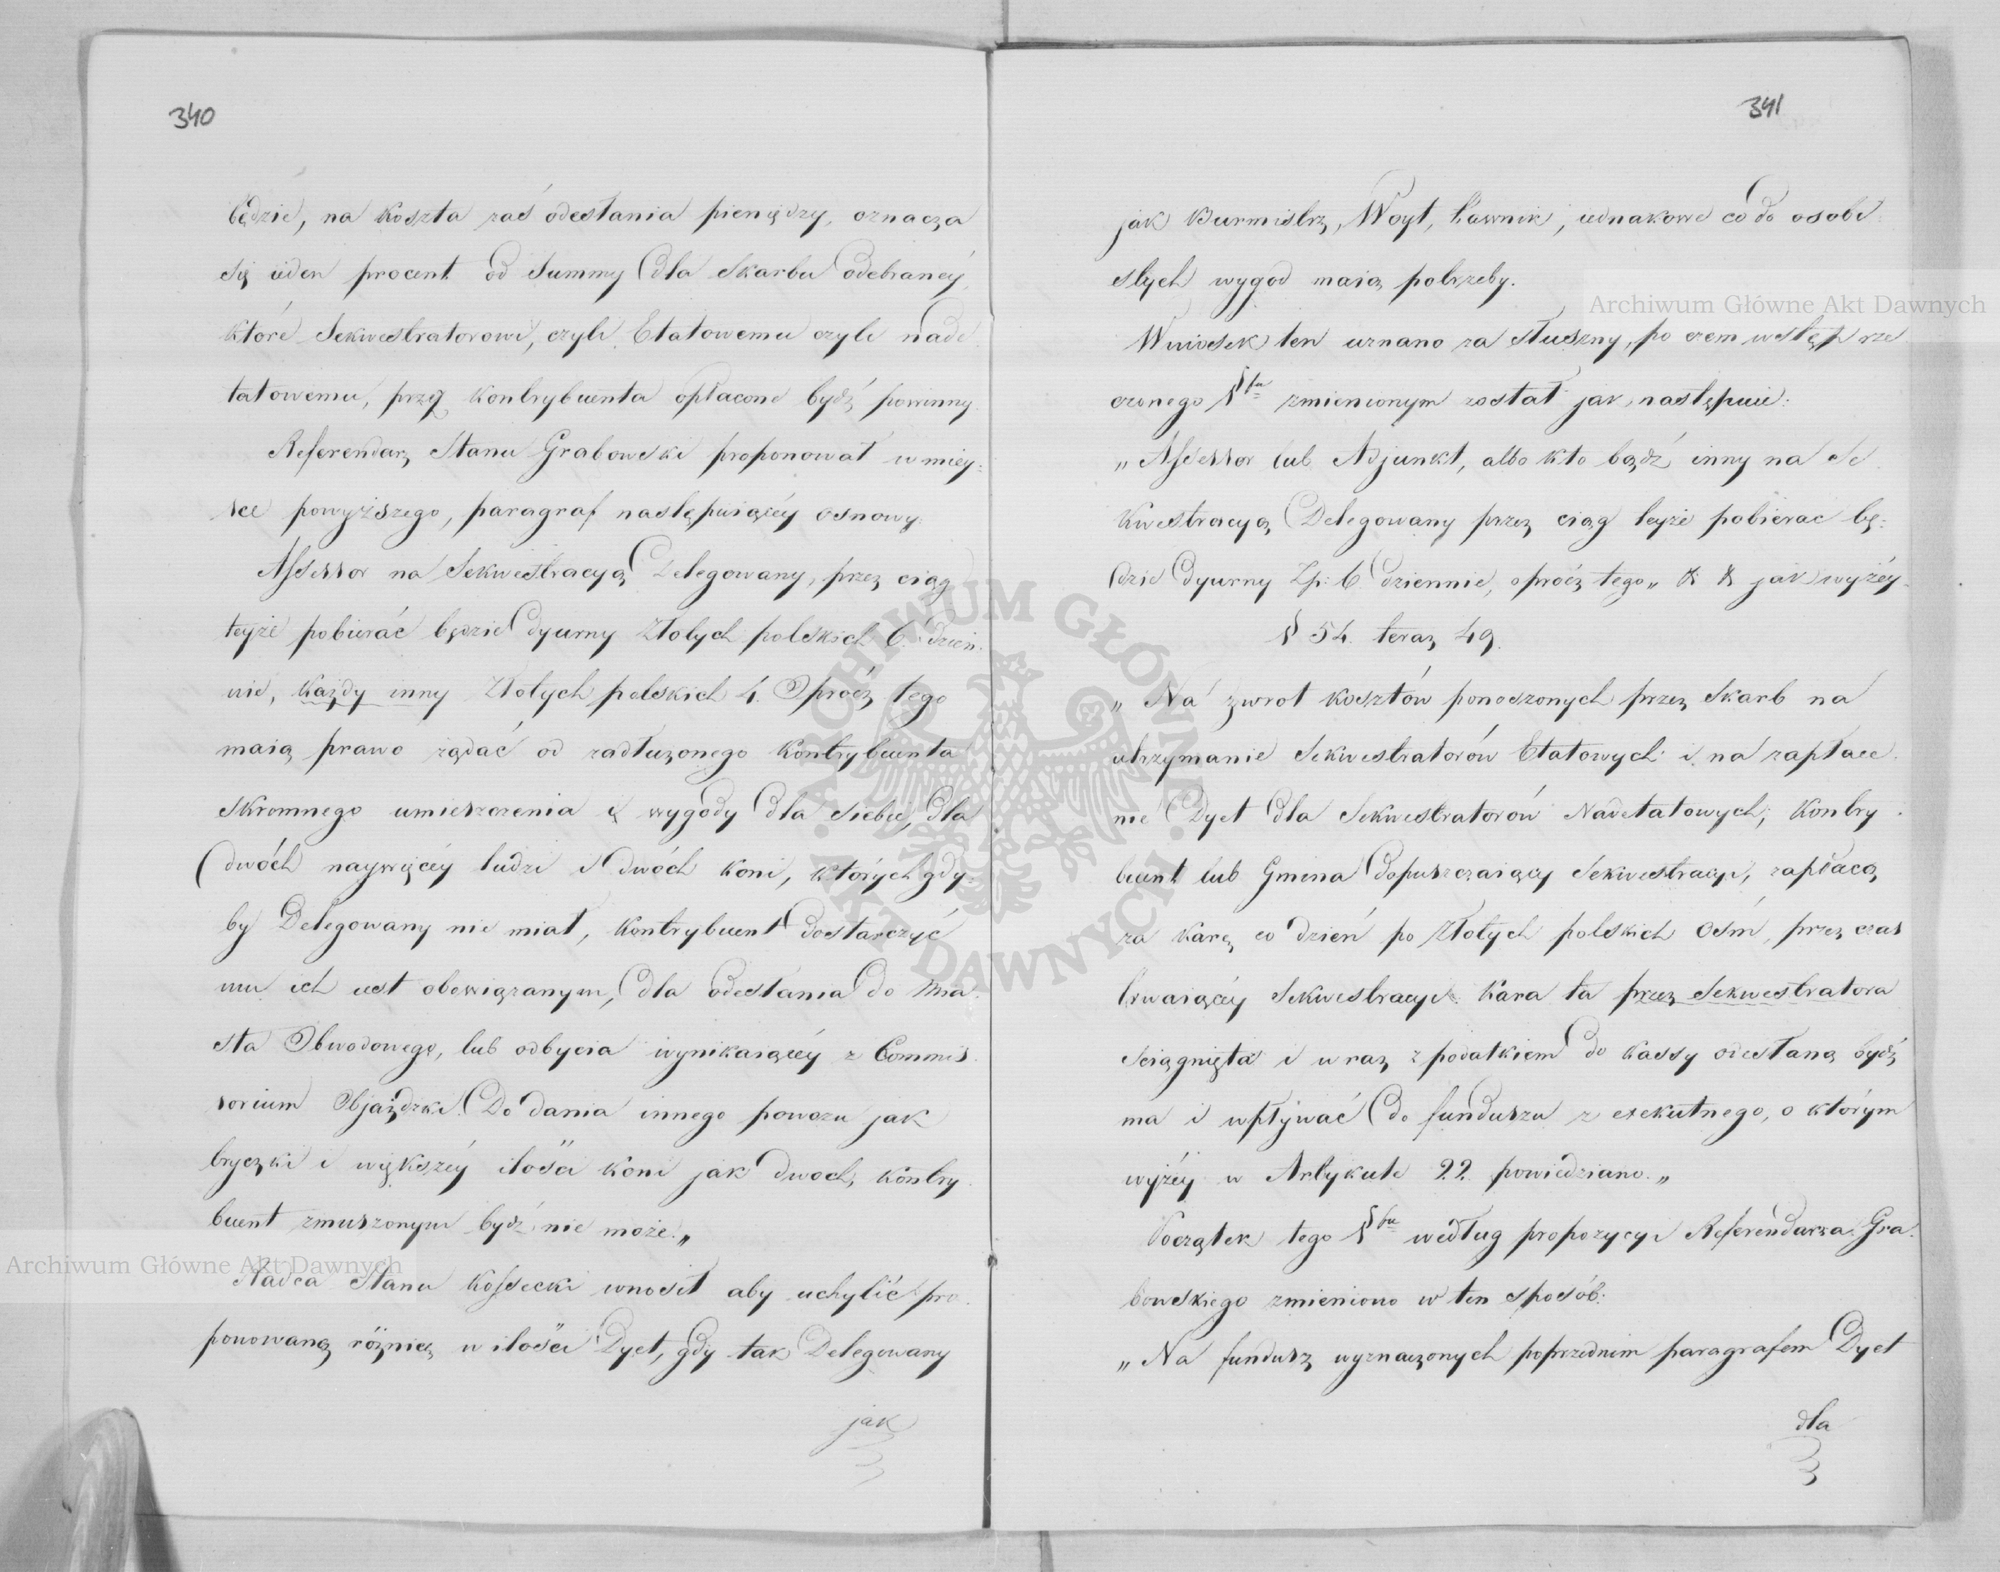 340
będzie, na koszta zaś odesłania pieniędzy, oznacza
się ieden procent od Summy dla Skarbu odebraney,
które Sekwestratorowi, czyli Etatowemu czyli nade
tatowemu, przez kontrybuenta opłacone bydź powinny
Referendarz Stanu Grabowski proponował w miey:
sce powyższego, paragraf następuiącéy osnowy:
Assessor na Sekwestracyą Delegowany, przez ciąg
teyże pobierać będzie dyurny Złotych polskich 6. dzien:
nie, każdy inny Złotych polskich 4. Oprócz tego
maią prawo żądać od zadłużonego kontrybuenta
skromnego umieszczenia i wygody dla siebie, dla
dwóch naywięcéy ludzi i dwóch koni, których gdy:
by Delegowany nie miał, kontrybuent dostarczyć
mu ich iest obowiązanym, dla odesłania do Mia:
sta Obwodowego, lub odbycia wynikaiącéy z Commis:
sorium Objażdżki. Do dania innego powozu jak
bryczki i większéy ilości koni jak dwoch, kontry
buent zmuszonym bydź nie może."
Radca Stanu Kossecki wnosił aby uchylić pro:
ponowaną różnicę w ilości Dyet, gdy tak Delegowany
jak
341
jak Burmistrz, Woyt, Ławnik, iednakowe co do osobi:
stych wygod maią potrzeby.
Wniosek ten uznano za słuszny, po czem wstęp rze
czonego §fu zmienionym został jak następuie:
„Assessor lub Adjunkt, albo kto bądź inny na Se
kwestracyą Delegowany przez ciąg teyże pobierać bę:
dzie dyurny Zp: 6 dziennie, oprócz tego" & & jak wyżéy.
§ 54. teraz 49.
„Na zwrot kosztów ponoszonych przez Skarb na
utrzymanie Sekwestratorów Etatowych i na zapłace:
nie Dyet dla Sekwestratorów Nadetatowych, kontry
buent lub Gmina dopuszczaiący Sekwestracyi, zapłacą
za karę co dzień po Złotych polskich ośm, przez czas
trwaiącéy Sekwestracyi. Kara ta przez Sekwestratora
ściągnięta i wraz z podatkiem do kassy odesłaną bydź
ma i wpływać do funduszu z exekutnego, o którym
wyżéy w Artykule 22 powiedziano."
Początek tego §fu według propozycyi Referendarza Gra:
bowskiego zmieniono w ten sposób:
„Na fundusz wyznaczonych poprzednim paragrafem Dyet
dla
Archiwum Główne Akt Dawnych
Archiwum Główne Akt Dawnych
ARCHIWUM GŁÓWNE AKT DAWNYCH